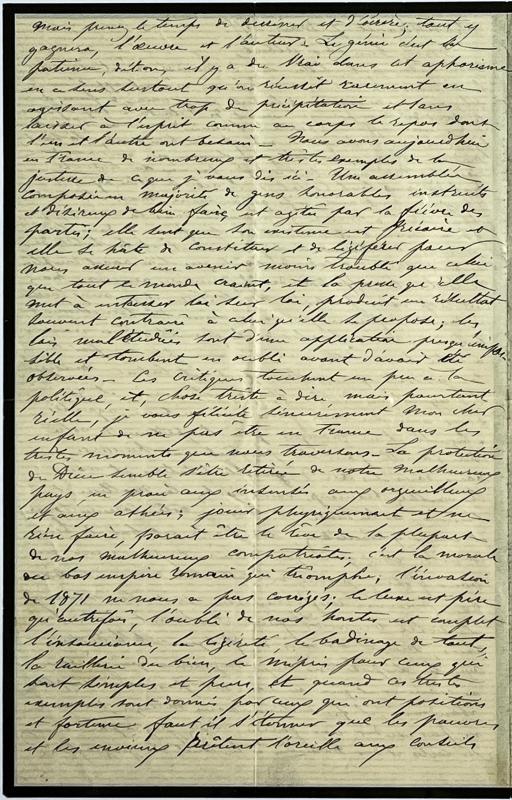 mais prenez le temps de dessiner et d'écrire, tout y
gagnera, l'œuvre et l'auteur. Le génie c'est la
patience, dit-on, il y a du vrai dans cet apophorisme
en ce sens surtout qu'on réussit rarement en
agissant avec trop de précipitation et sans
laisser à l'esprit comme au corps le repos dont
l'un et l'autre ont besoin. Nous avons aujourd'hui
en France de nombreux et tristes exemples de la
justesse de ce que je vous dis ici. Une assemblée
composée en majorité de gens honorables instruits
et désireux de bien faire est agitée par la fièvre des
partis; elle sent que son existence est précaire et
elle se hâte de constituer et de légiférer pour
nous assurer un avenir moins troublé que celui
que tout le monde craint, et la presse qu'elle
met à entasser loi sur loi, produit un résultat
souvent contraire à celui qu'elle se propose; les
lois mal étudiées sont d'une application presque impos
sible et tombent en oubli avant d'avoir été
observées. Ces critiques touchent un peu à la
politique, et, chose triste à dire mais pourtant
réelle, je vous félicite sincèrement mon cher
enfant de ne pas être en France dans les
tristes moments que nous traversons. La protection
de Dieu semble s'être retirée de notre malheureux
pays en proie aux insensés aux orgueilleux
et aux athées; jouir et ne
rien faire, paraît être le rêve de la plupart
de nos malheureux compatriotes, c'est la morale
du bas empire romain qui triomphe; l'invasion
de 1871 ne nous a pas corrigés; le luxe est pire
qu'autrefois, l'oubli de nos hontes est complet
l'insouciance, la légèreté, le badinage de tout,
la raillerie du bien, le mépris pour ceux qui
sont simples et purs, et quand ces tristes
exemples sont donnés par ceux qui ont positions
et fortune faut il s'étonner que les pauvres
et les envieux prêtent l'oreille aux conseils